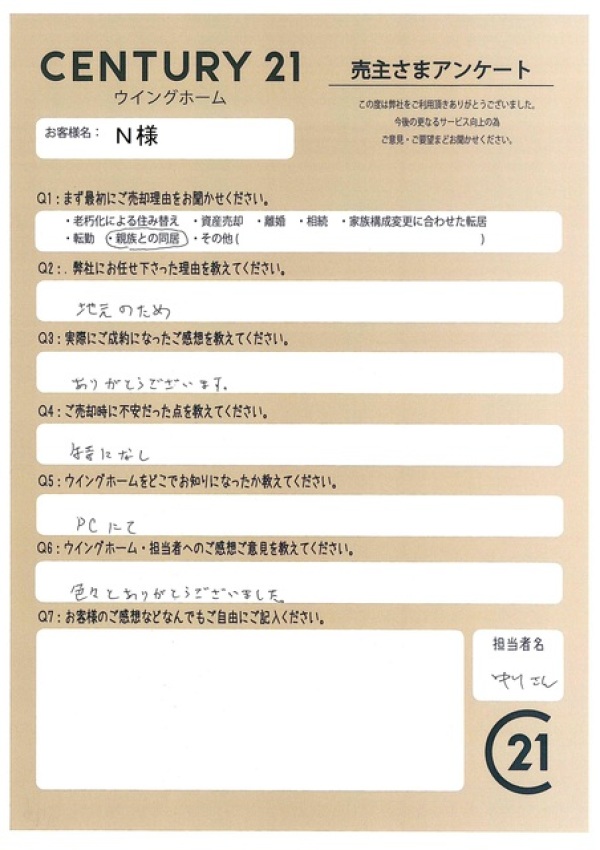 CENTURY 21
ウイングホーム
売主さまアンケート
この度は弊社をご利用頂きありがとうございました。
今後の更なるサービス向上の為
ご意見・ご要望まどお聞かせください。
お客様名： N様
Q1：まず最初にご売却理由をお聞かせください。
・老朽化による住み替え ・資産売却 ・離婚 ・相続 ・家族構成変更に合わせた転居
・転勤 ・親族との同居 ・その他( )
Q2：. 弊社にお任せ下さった理由を教えてください。
地元のため
Q3：実際にご成約になったご感想を教えてください。
ありがとうございます。
Q4：ご売却時に不安だった点を教えてください。
特になし
Q5：ウイングホームをどこでお知りになったか教えてください。
PCにて
Q6：ウイングホーム・担当者へのご感想ご意見を教えてください。
色々とありがとうございました。
Q7：お客様のご感想などなんでもご自由にご記入ください。
担当者名
さん
21